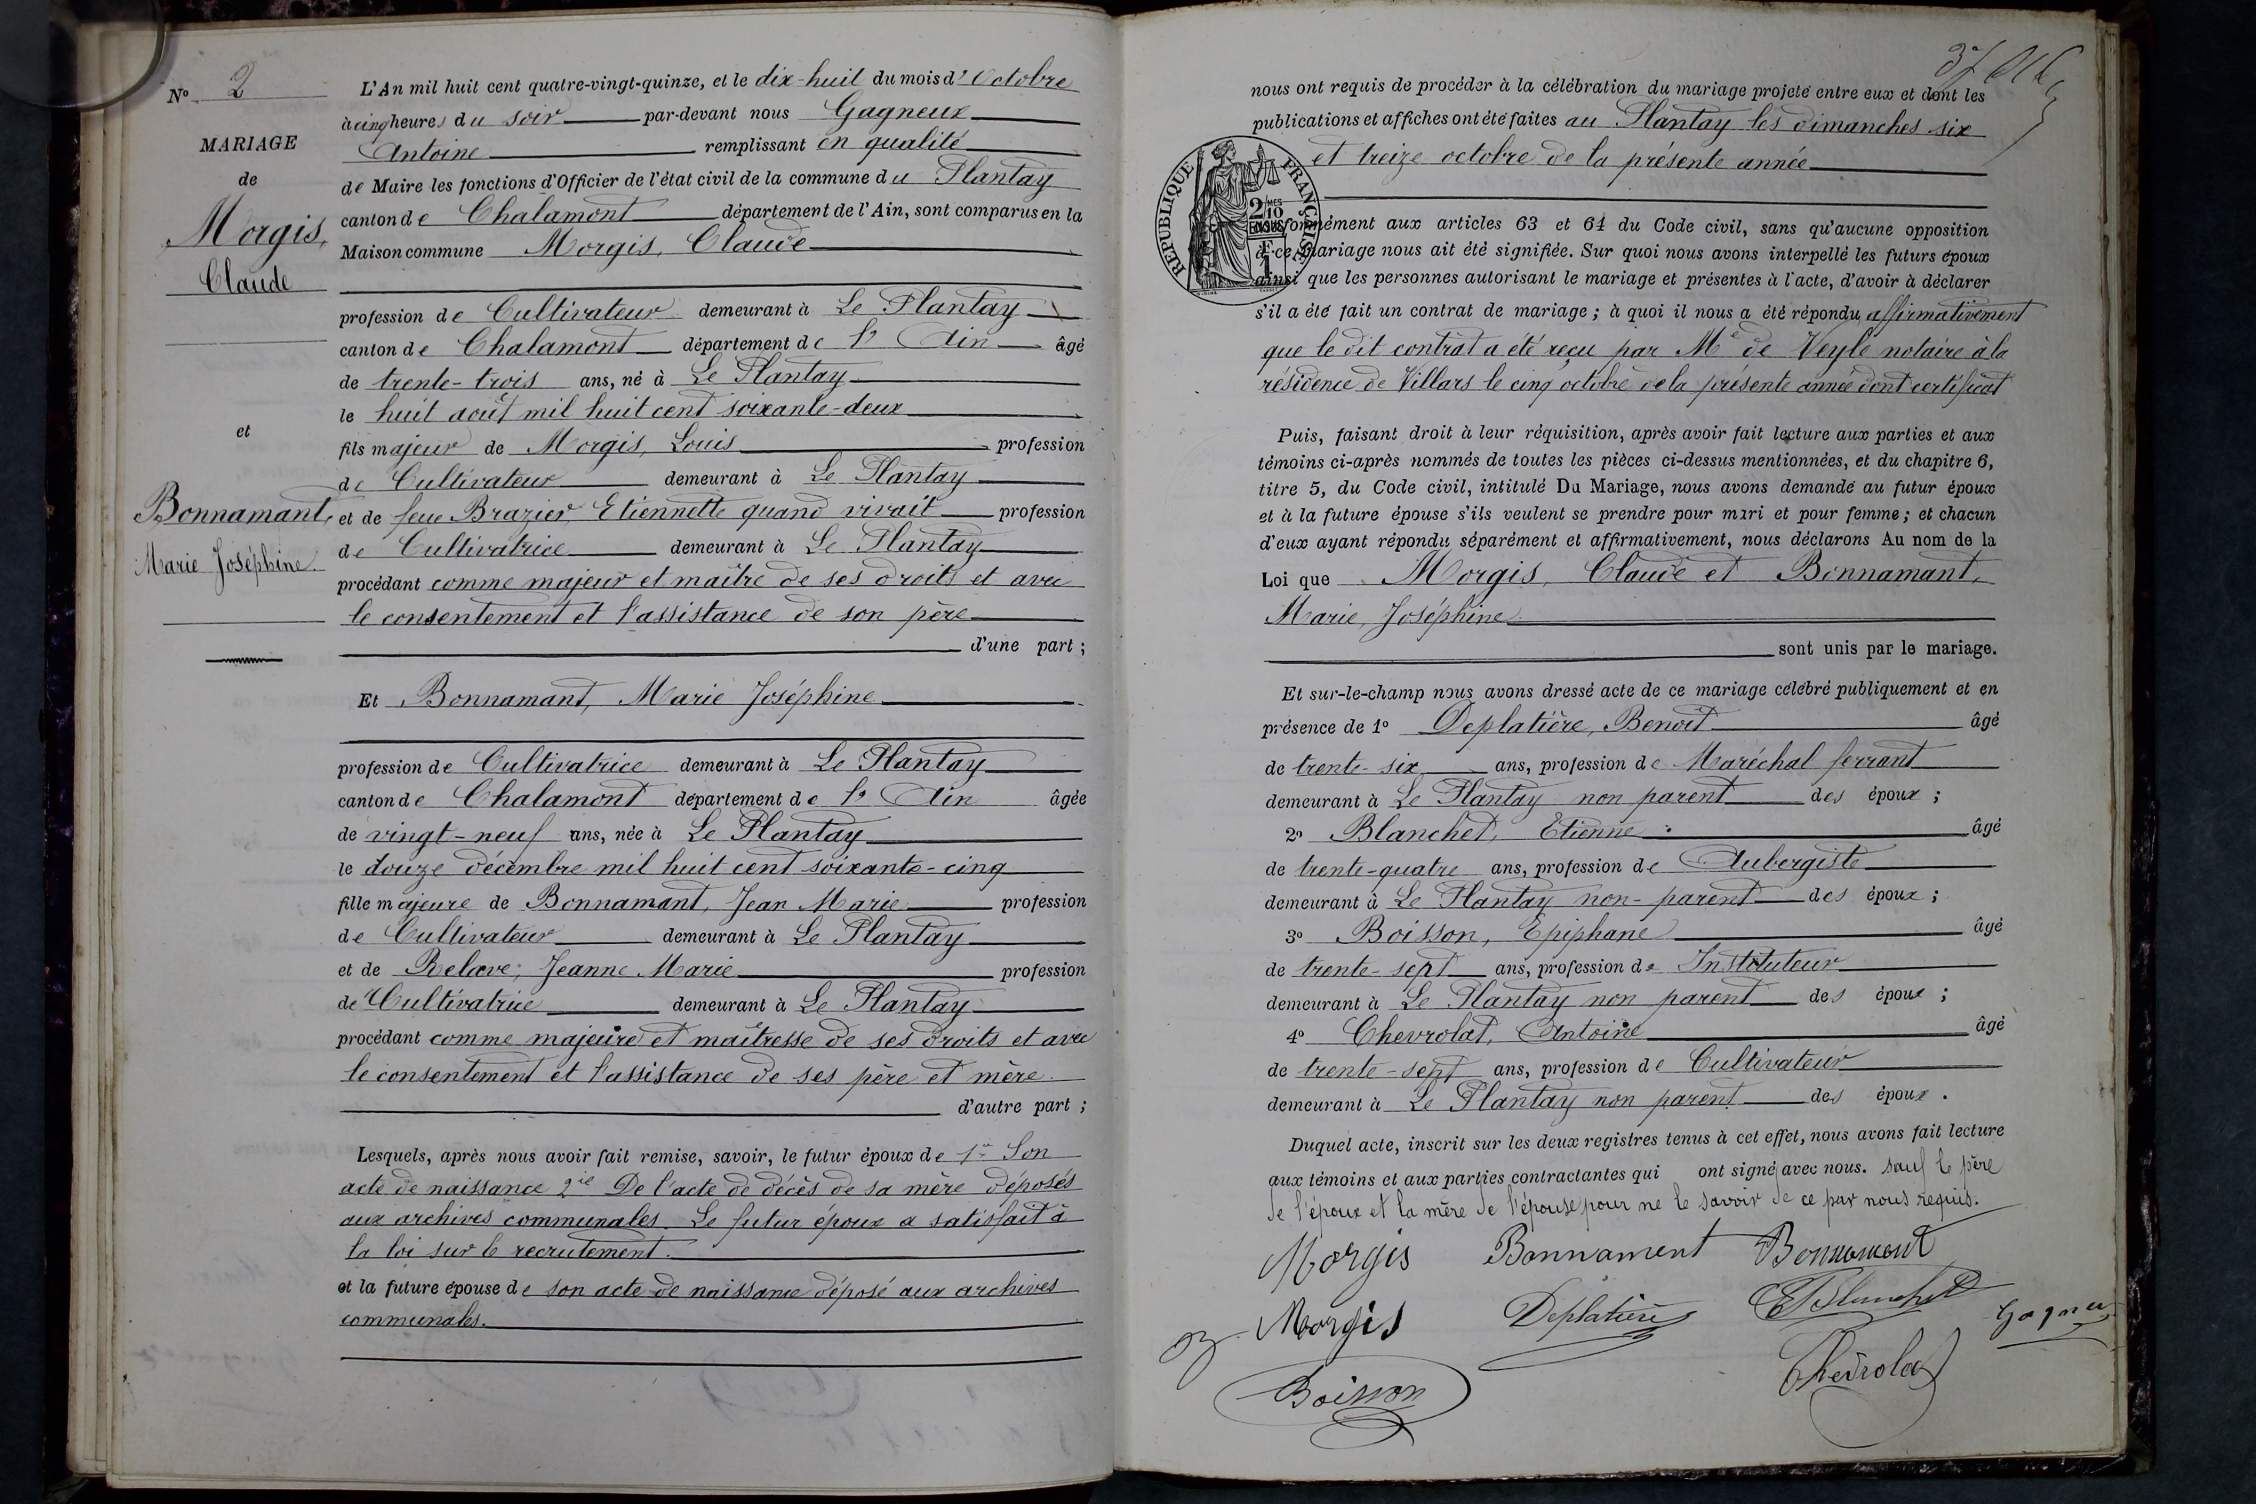 N° 2
MARIAGE
de
Morgis,
Claude
et
Bonnamant,
Marie Joséphine.
L'An mil huit cent quatre-vingt-quinze, et le dix-huit du mois d'Octobre
à cinq heures du soir par-devant nous Gagneux
Antoine remplissant en qualité
de Maire les fonctions d'Officier de l'état civil de la commune du Plantay
canton de Chalamont département de l'Ain, sont comparus en la
Maison commune Morgis, Claude
profession de Cultivateur demeurant à Le Plantay
canton de Chalamont département de l'Ain âgé
de trente-trois ans, né à Le Plantay
le huit août mil huit cent soixante-deux
fils majeur de Morgis, Louis profession
de Cultivateur demeurant à Le Plantay
et de feue Brazier, Etiennette quand vivait profession
de Cultivatrice demeurant à Le Plantay
procédant comme majeur et maître de ses droits et avec
le consentement et l'assistance de son père
d'une part ;
Et Bonnamant, Marie Joséphine
profession de Cultivatrice demeurant à Le Plantay
canton de Chalamont département de l'Ain âgée
de vingt-neuf ans, née à Le Plantay
le douze décembre mil huit cent soixante-cinq
fille majeure de Bonnamant, Jean Marie profession
de Cultivateur demeurant à Le Plantay
et de Relave, Jeanne Marie profession
de Cultivatrice demeurant à Le Plantay
procédant comme majeure et maîtresse de ses droits et avec
le consentement et l'assistance de ses père et mère.
d'autre part ;
Lesquels, après nous avoir fait remise, savoir, le futur époux de 1er Son
acte de naissance 2ie De l'acte de décès de sa mère déposés
aux archives communales. Le futur époux a satisfait à
la loi sur le recrutement.
et la future épouse de son acte de naissance déposé aux archives
communales.
nous ont requis de procéder à la célébration du mariage projeté entre eux et dont les
publications et affiches ont été faites au Plantay les dimanches six
et treize octobre de la présente année
RÉPUBLIQUE FRANÇAISE
2 MES
10
EN SUS
1 F
conformément aux articles 63 et 64 du Code civil, sans qu'aucune opposition
à ce mariage nous ait été signifiée. Sur quoi nous avons interpellé les futurs époux
ainsi que les personnes autorisant le mariage et présentes à l'acte, d'avoir à déclarer
s'il a été fait un contrat de mariage ; à quoi il nous a été répondu affirmativement
que le dit contrat a été reçu par Me de Veyle notaire à la
résidence de Villars le cinq octobre de la présente année dont certificat
Puis, faisant droit à leur réquisition, après avoir fait lecture aux parties et aux
témoins ci-après nommés de toutes les pièces ci-dessus mentionnées, et du chapitre 6,
titre 5, du Code civil, intitulé Du Mariage, nous avons demandé au futur époux
et à la future épouse s'ils veulent se prendre pour mari et pour femme ; et chacun
d'eux ayant répondu séparément et affirmativement, nous déclarons Au nom de la
Loi que Morgis, Claude et Bonnamant,
Marie, Joséphine
sont unis par le mariage.
Et sur-le-champ nous avons dressé acte de ce mariage célébré publiquement et en
présence de 1° Deplatière, Benoît âgé
de trente-six ans, profession de Maréchal ferrant
demeurant à Le Plantay non parent des époux ;
2° Blanchet, Etienne âgé
de trente-quatre ans, profession de Aubergiste
demeurant à Le Plantay non-parent des époux ;
3° Boisson, Epiphane âgé
de trente-sept ans, profession de Instituteur
demeurant à Le Plantay non parent des époux ;
4° Chevrolat, Antoine âgé
de trente-sept ans, profession de Cultivateur
demeurant à Le Plantay non parent des époux.
Duquel acte, inscrit sur les deux registres tenus à cet effet, nous avons fait lecture
aux témoins et aux parties contractantes qui ont signé avec nous. sauf le père
de l'époux et la mère de l'épouse pour ne le savoir de ce par nous requis.
Morgis Bonnament Bonnamont
Morgis Deplatière E Blanchet Gagneux
Boisson Chevrolat